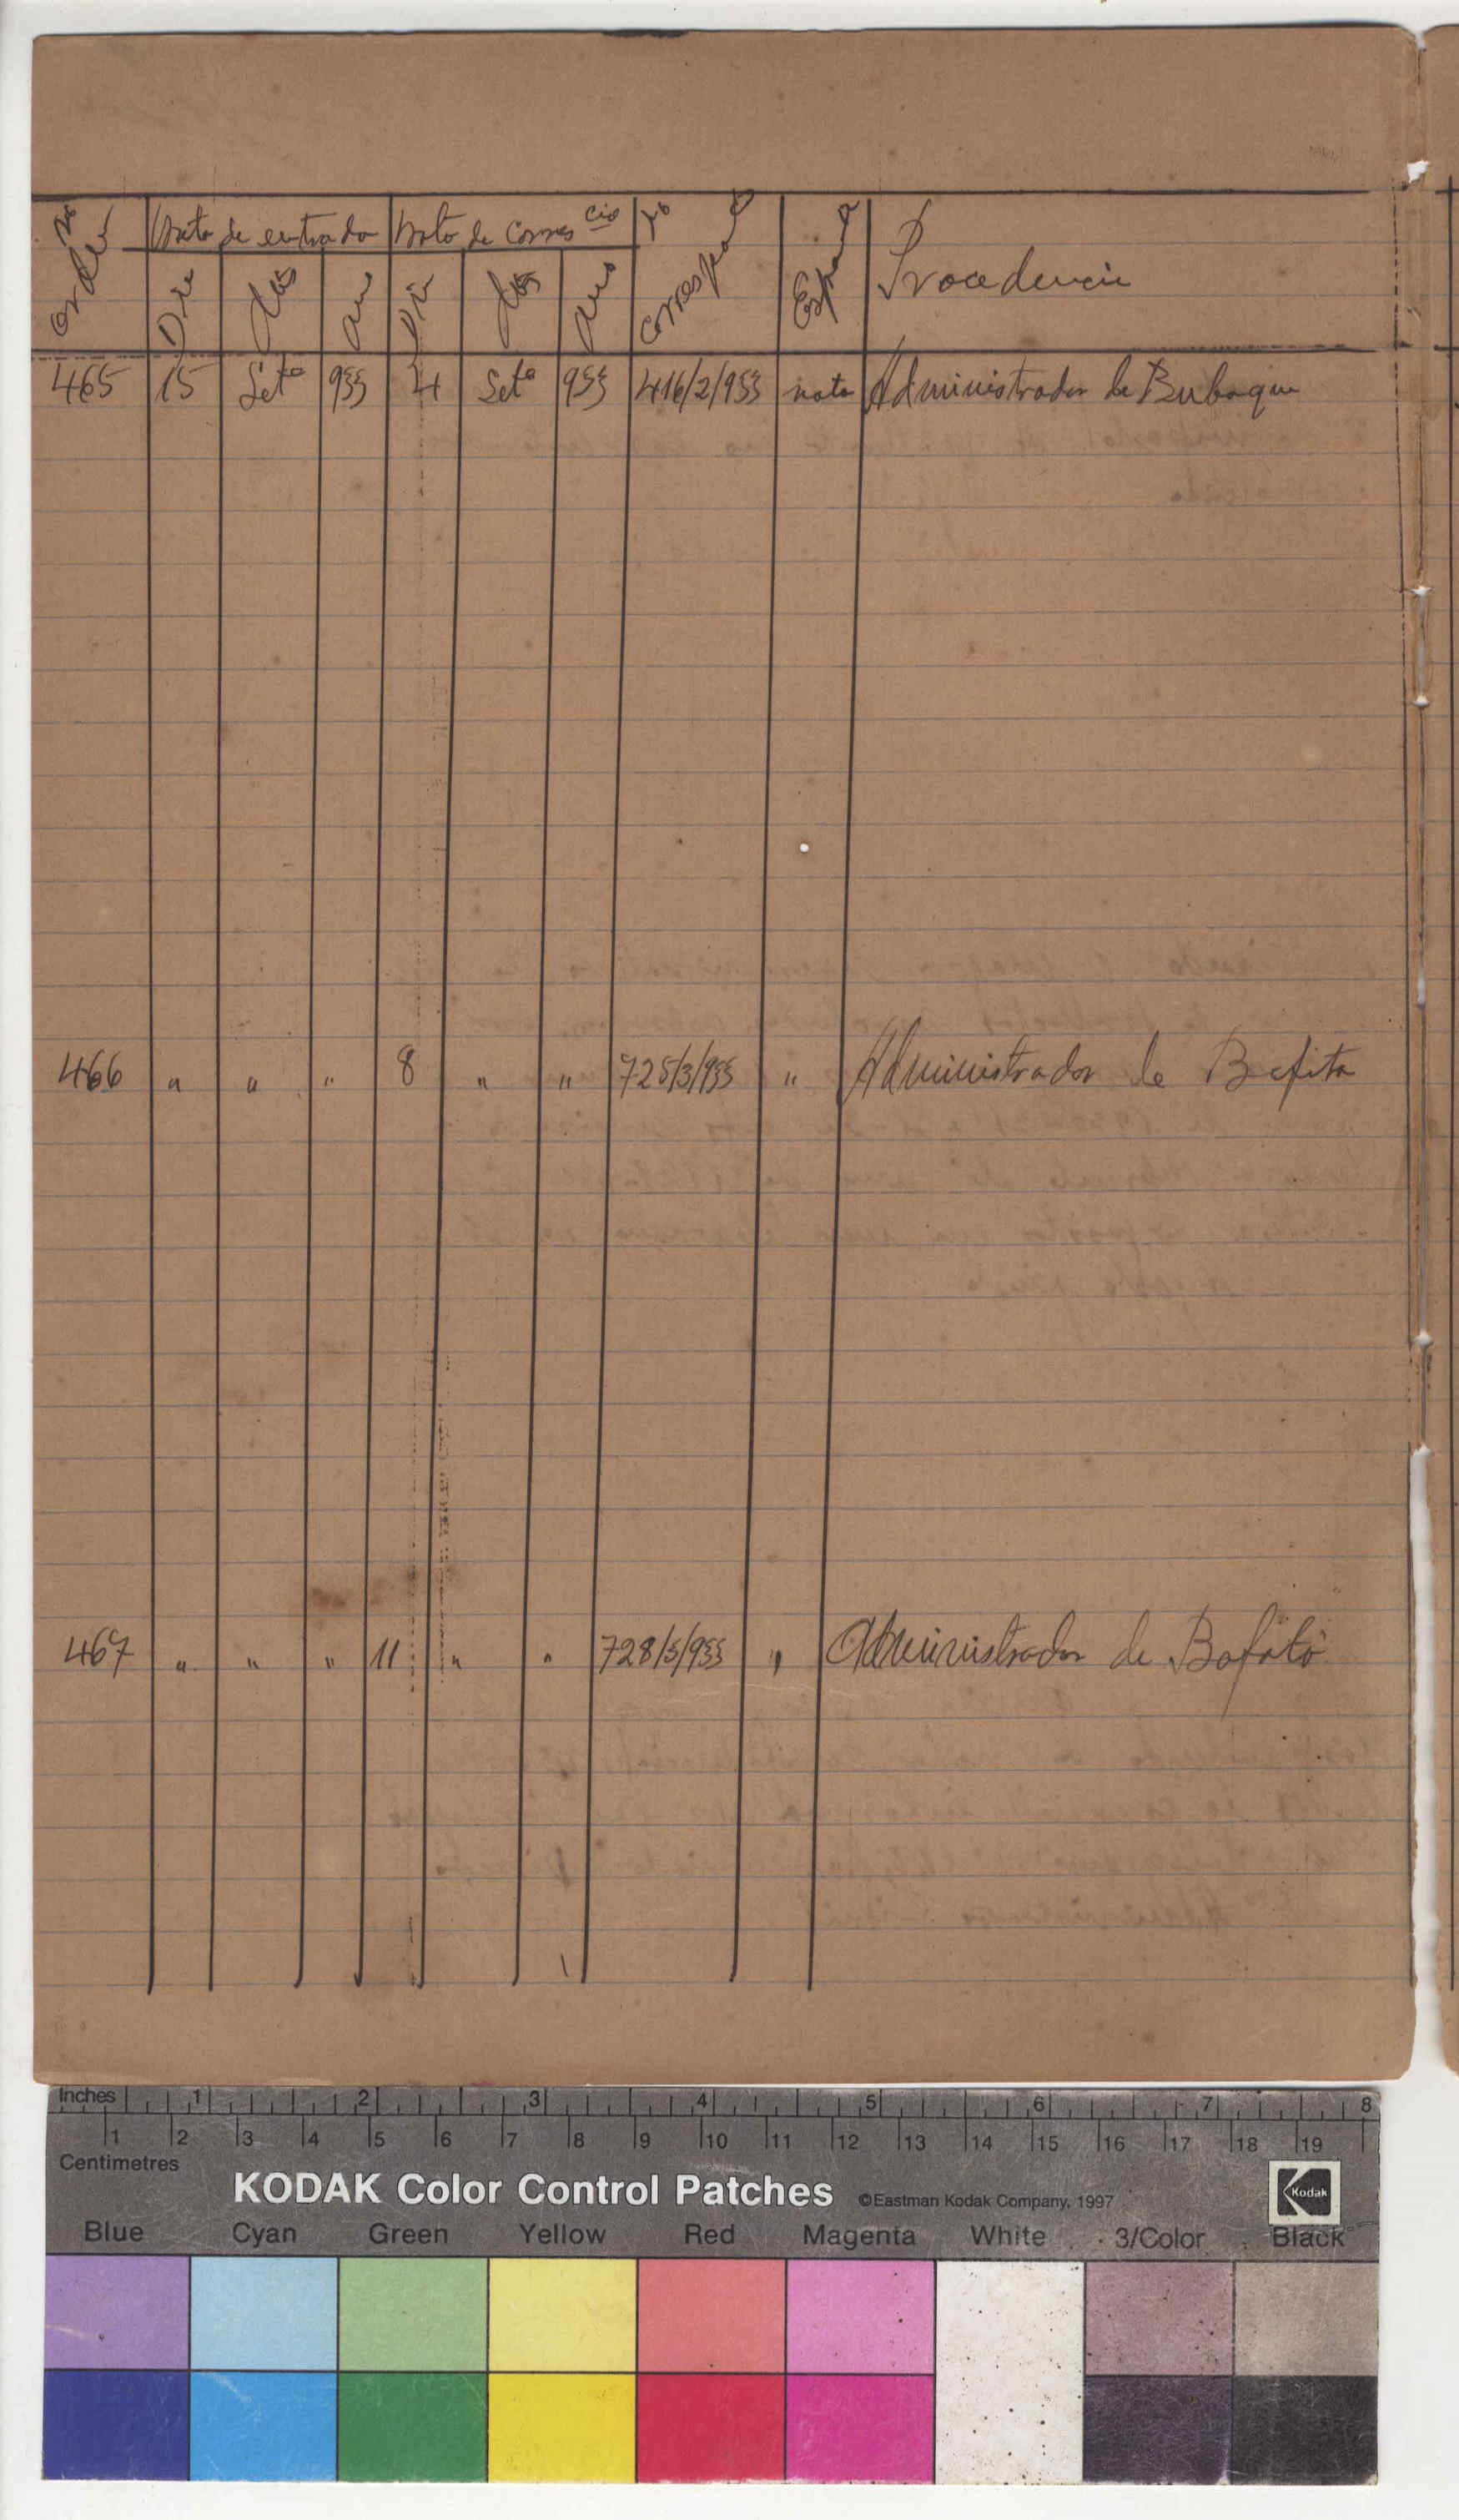 Nº Ordem Data de entrada Data de Corres cia Nº Correspond Espé Procedencia
Dia Mês Ano Dia Mês Ano
465 15 Setº 933 4 Setº 933 416/2/933 nota Administrador de Bubaque
466 " " " 8 " " 725/3/933 " Administrador de Bafata
467 " " " 11 " " 728/5/933 " Administrador de Bafatá
Inches 1 2 3 4 5 6 7 8
1 2 3 4 5 6 7 8 9 10 11 12 13 14 15 16 17 18 19
Centimetres
KODAK Color Control Patches ©Eastman Kodak Company, 1997 Kodak
Blue Cyan Green Yellow Red Magenta White 3/Color Black